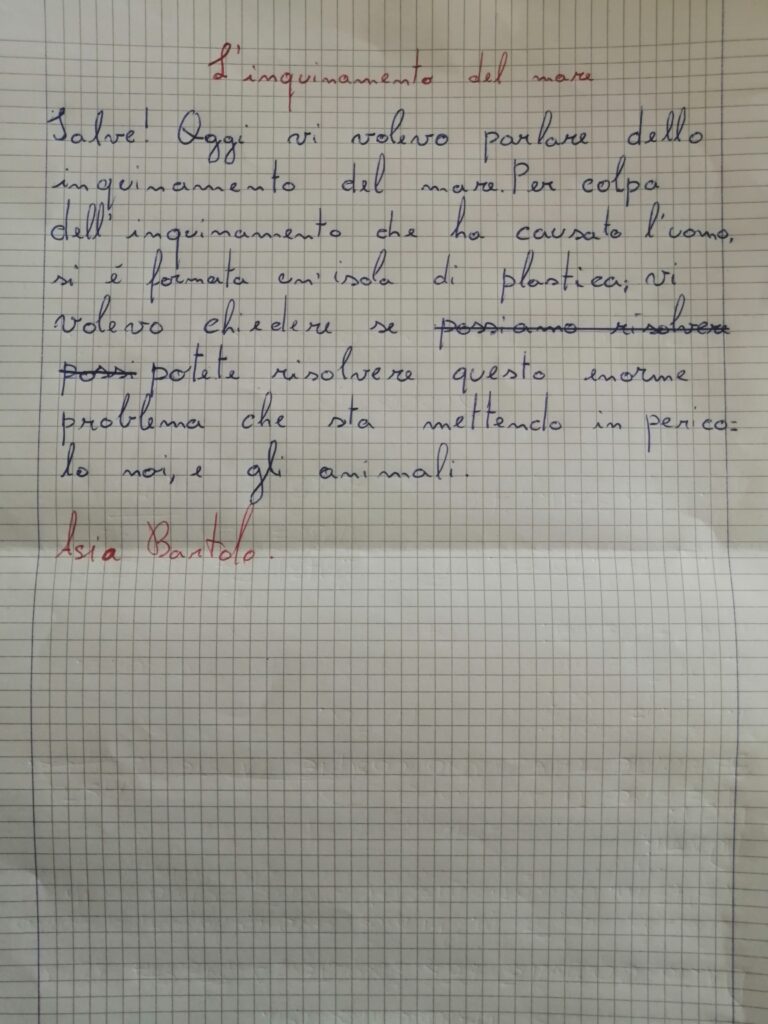 L'inquinamento del mare
Salve! Oggi vi volevo parlare dello
inquinamento del mare. Per colpa
dell'inquinamento che ha causato l'uomo,
si é formata un'isola di plastica; vi
volevo chiedere se possiamo risolvere
possi potete risolvere questo enorme
problema che sta mettendo in perico=
lo noi, e gli animali.
Asia Bartolo.